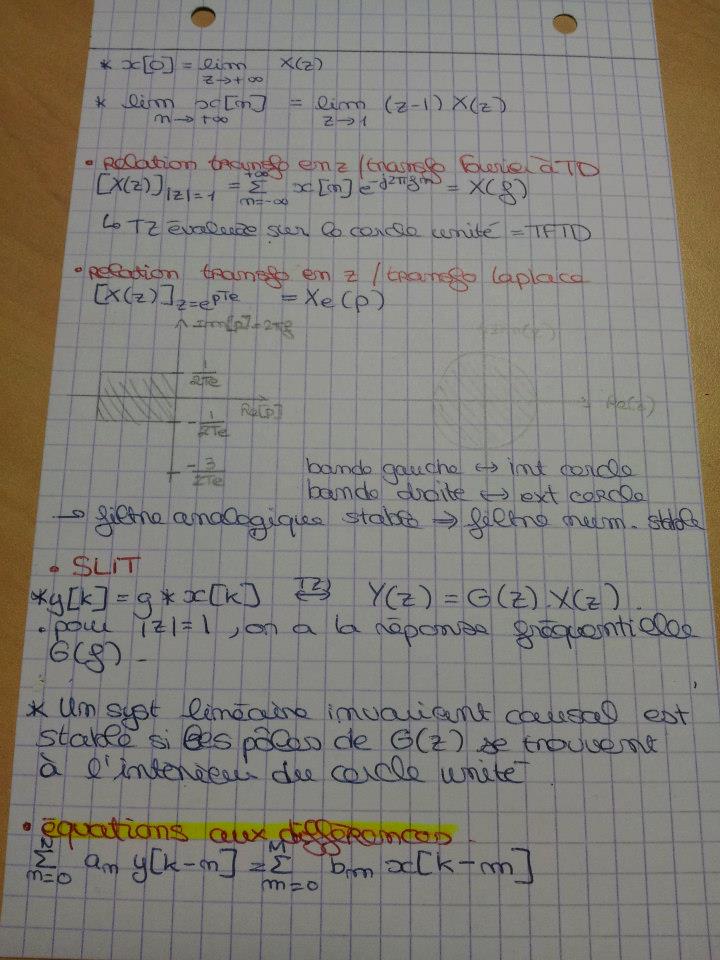 * x[0] = lim x(z)
z→+∞
* lim x[n] = lim (z-1) X(z)
n→+∞ z→1
• Relation transfo en z / transfo Fourier à TD
[X(z)]|z|=1 = +∞Σn=-∞ x[n] e^-j2πfn = X(f)
↳ TZ évaluée sur le cercle unité = TFTD
• Relation transfo en z / transfo Laplace
[X(z)]z=e^pTe = Xe(p)
Im[p]=2πf
Im(z)
1/2Te
Re[p]
Re(z)
-1/2Te
-3/2Te
bande gauche ↔ int cercle
bande droite ↔ ext cercle
→ filtre analogique stable ⇒ filtre num. stable
• SLIT
* y[k] = g * x[k] TZ⇔ Y(z) = G(z).X(z).
• pour |z|=1, on a la réponse fréquentielle
G(f) -
* Un syst linéaire invariant causal est
stable si les pôles de G(z) se trouvent
à l'interieur du cercle unité
• équations aux différences.
NΣn=0 an y[k-n] = MΣm=0 bm x[k-m]